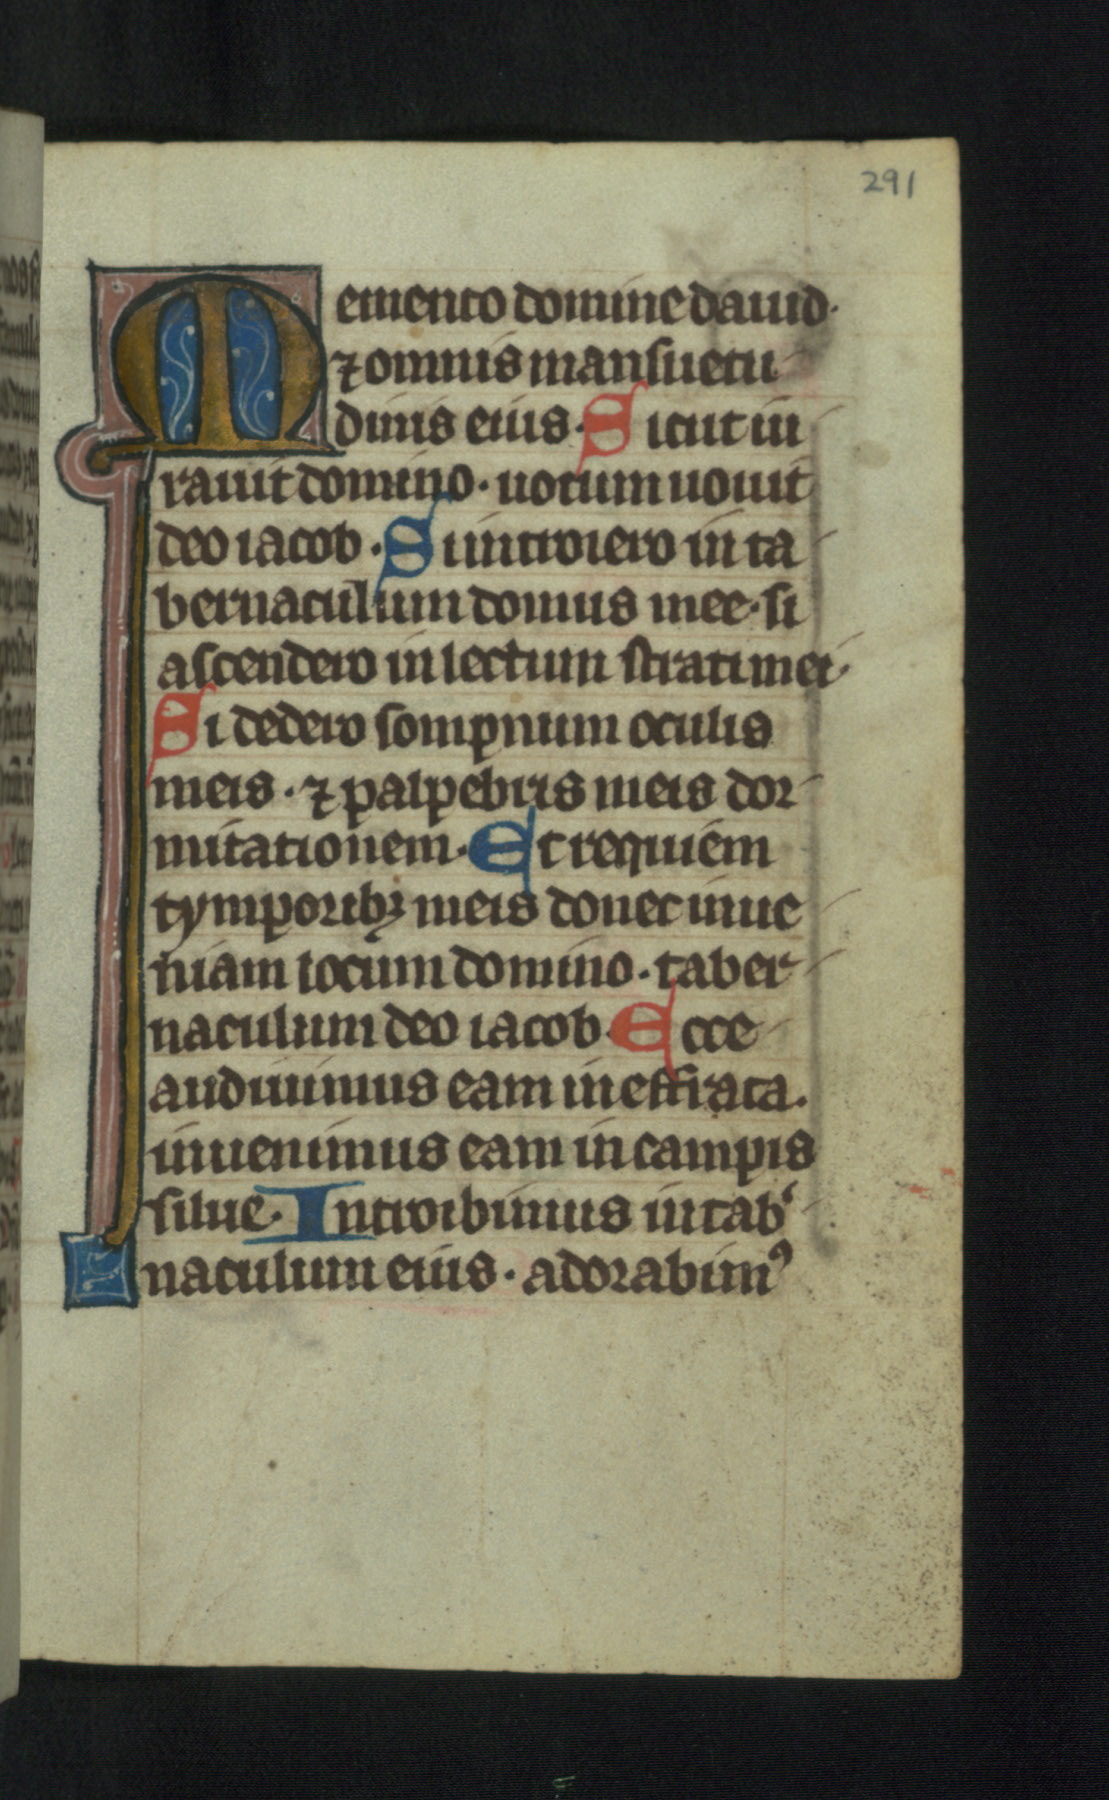 291
Memento domine dauid·
⁊ omnis mansuetu
dinis eius· Sicut iu
rauit domino · uotum uouit
deo iacob · Si introiero in ta
bernaculum domus mee · si
ascendero in lectum strati mei·
Si dedero sompnum oculis
meis · ⁊ palpebris meis dor
mitationem· Et requiem
tymporibꝫ meis donec inue
niam locum domino · taber
naculum deo iacob· Ecce
audiuimus eam in effrata.
inuenimus eam in campis
silue· Introibimus in tab'
naculum eius · adorabimꝰ